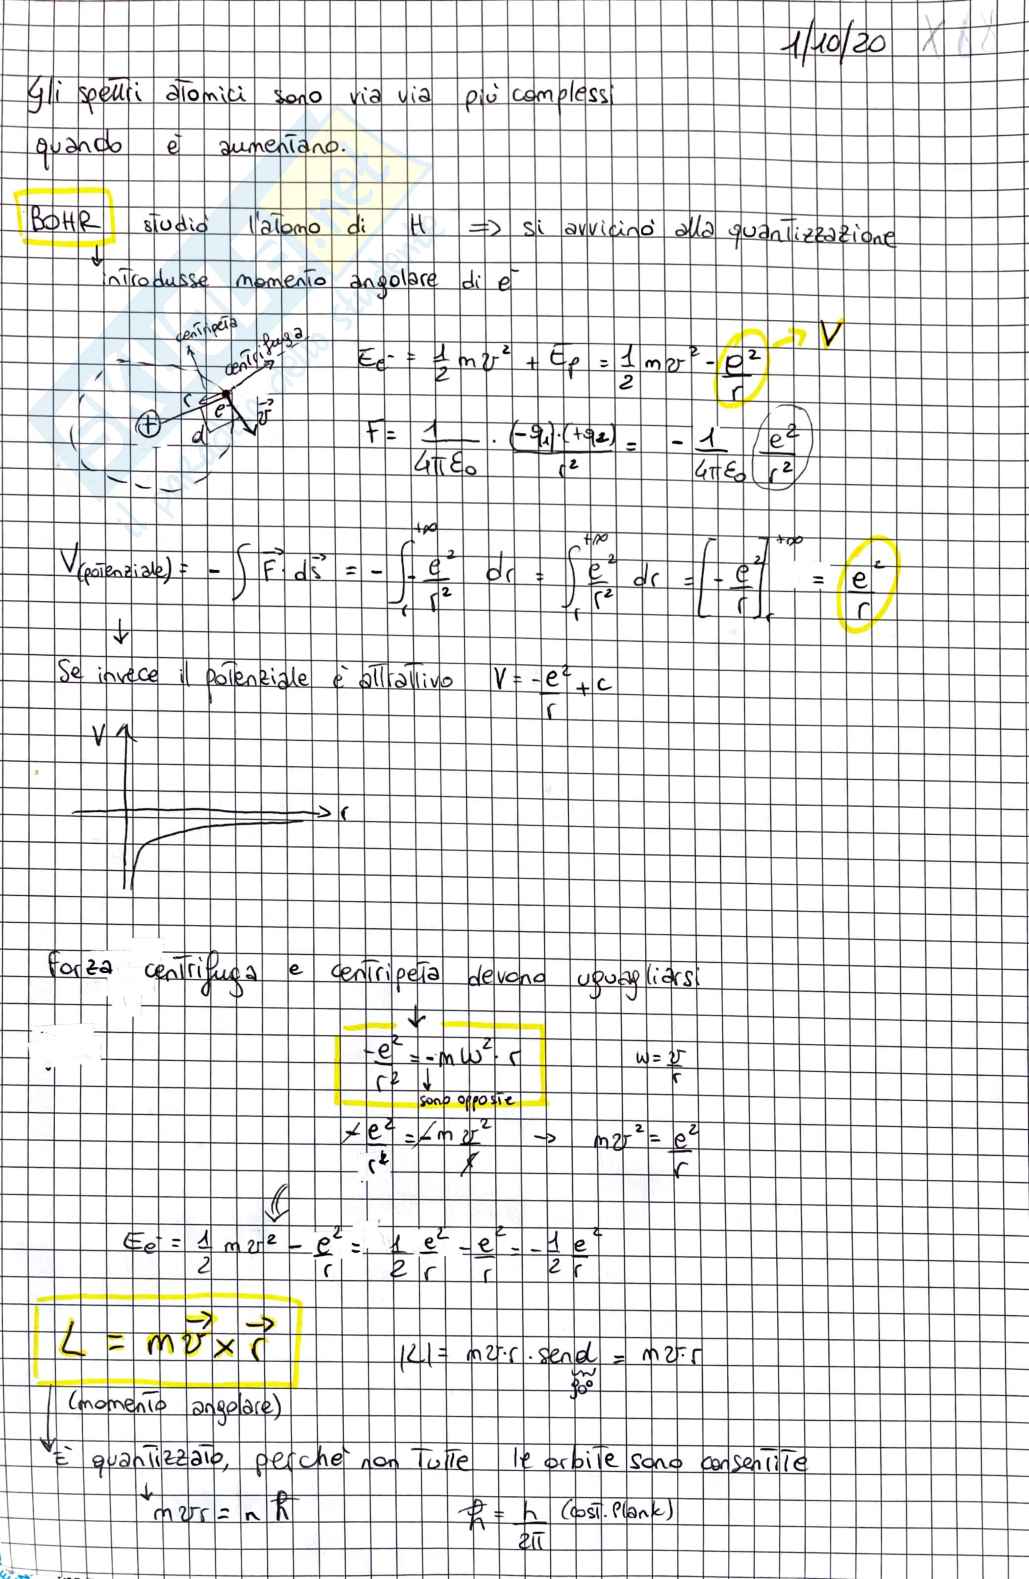 1/10/20
Gli spettri atomici sono via via più complessi
quando e⁻ aumentano.
BOHR studiò l'atomo di H => si avvicinò alla quantizzazione
↓
introdusse momento angolare di e⁻
centripeta
centrifuga
r e⁻ v⃗
+ d
E e⁻ = 1/2 mv² + Ep = 1/2 mv² - e²/r → V
F = 1/4πε₀ · (-q₁)·(+q₂)/r² = - 1/4πε₀ e²/r²
V(potenziale) = - ∫ F⃗ · ds⃗ = - ∫_r^{+∞} - e²/r² dr = ∫_r^{+∞} e²/r² dr = [- e²/r]_r^{+∞} = e²/r
↓
Se invece il potenziale è attrattivo V = -e²/r + c
V
r
forza centrifuga e centripeta devono uguagliarsi
↓
-e²/r² = -mw² · r w = v/r
↓
sono opposte
-e²/r² = -m v²/r → mv² = e²/r
E e⁻ = 1/2 mv² - e²/r = 1/2 e²/r - e²/r = - 1/2 e²/r
L = m v⃗ × r⃗ |L| = mv·r · send = mv·r
90°
(momento angolare)
È quantizzato, perché non tutte le orbite sono consentite
↓
mvr = n ħ ħ = h/2π (cost. Plank)